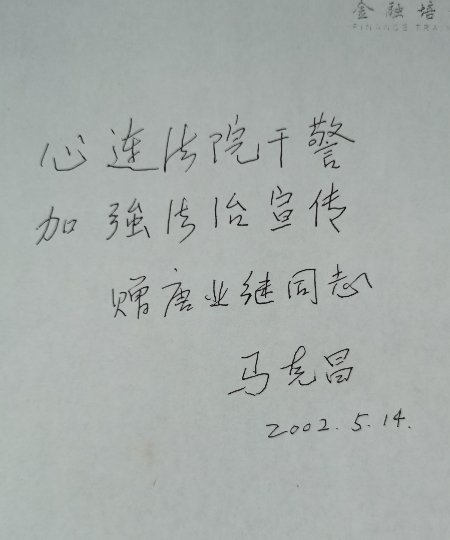 金融培
FINANCE TRAI
心连法院干警
加強法治宣传
赠唐业继同志
马克昌
2002.5.14.